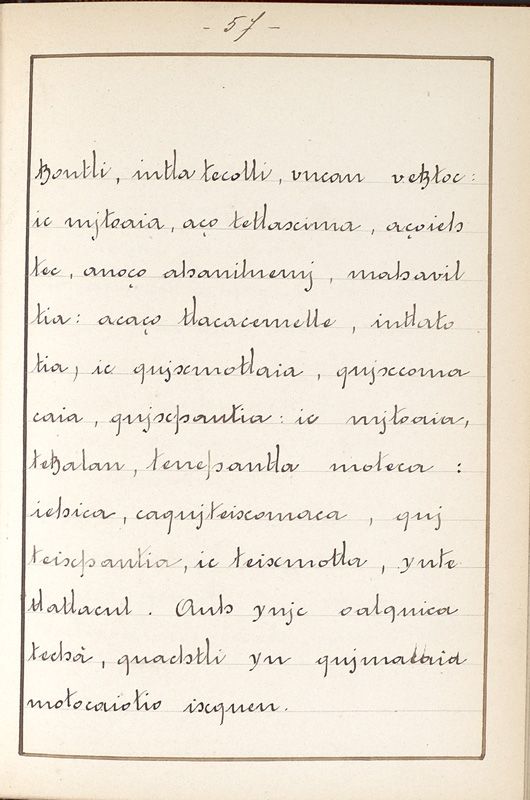 - 57 -
tzontli, intla tecolli, vncan vetztoc:
ic mjtoaia, aço tetlaxcima, açoich
tec, anoço ahanilnemj, mahavil
tia: acaço tlacacemelle, intlato
tia, ic qujxmotlaia, qujxcoma
caia, qujxpantia: ic mjtoaia,
tetzalan, tenepantla moteca :
iehica, caqujteixcomaca, quj
teixpantia, ic teixmotla, ynte
tlatlacul. Auh ynjc oalquica
techà, quachtli yn qujmacaia
motocaiotio ixquen.